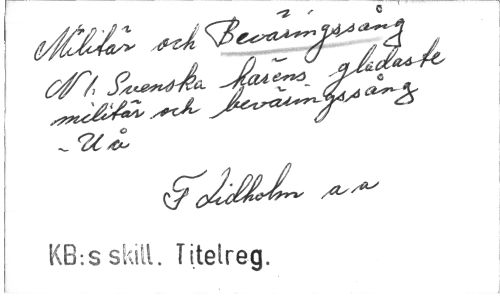 Militär och Beväringssång
N 1. Svenska härens gladaste
militär och beväringssång
- U å
F Lidholm a a
KB:s skill. Titelreg.